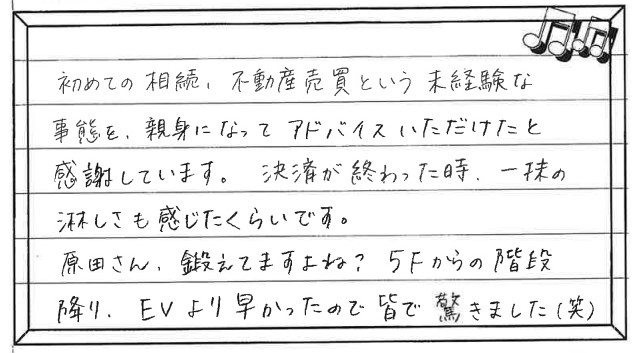 初めての相続、不動産売買という未経験な
事態を、親身になってアドバイスいただけたと
感謝しています。 決済が終わった時、一抹の
淋しさも感じたくらいです。
原田さん、鍛えてますよね? 5Fからの階段
降り、EVより早かったので皆で驚きました(笑)